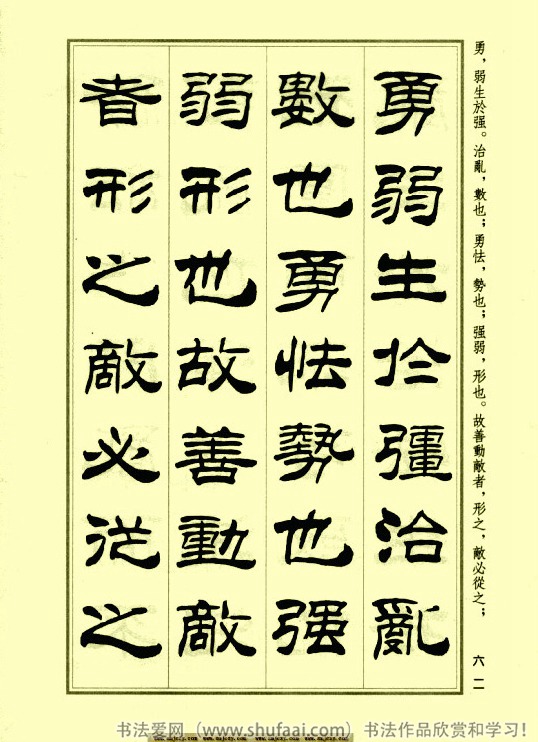 勇，弱生於强。治亂，數也；勇怯，勢也；强弱，形也。故善動敵者，形之，敵必從之；
六一
勇弱生於彊治亂
數也勇怯勢也强
弱形也故善動敵
者形之敵必從之
书法爱网（www.shufaai.com）书法作品欣赏和学习！